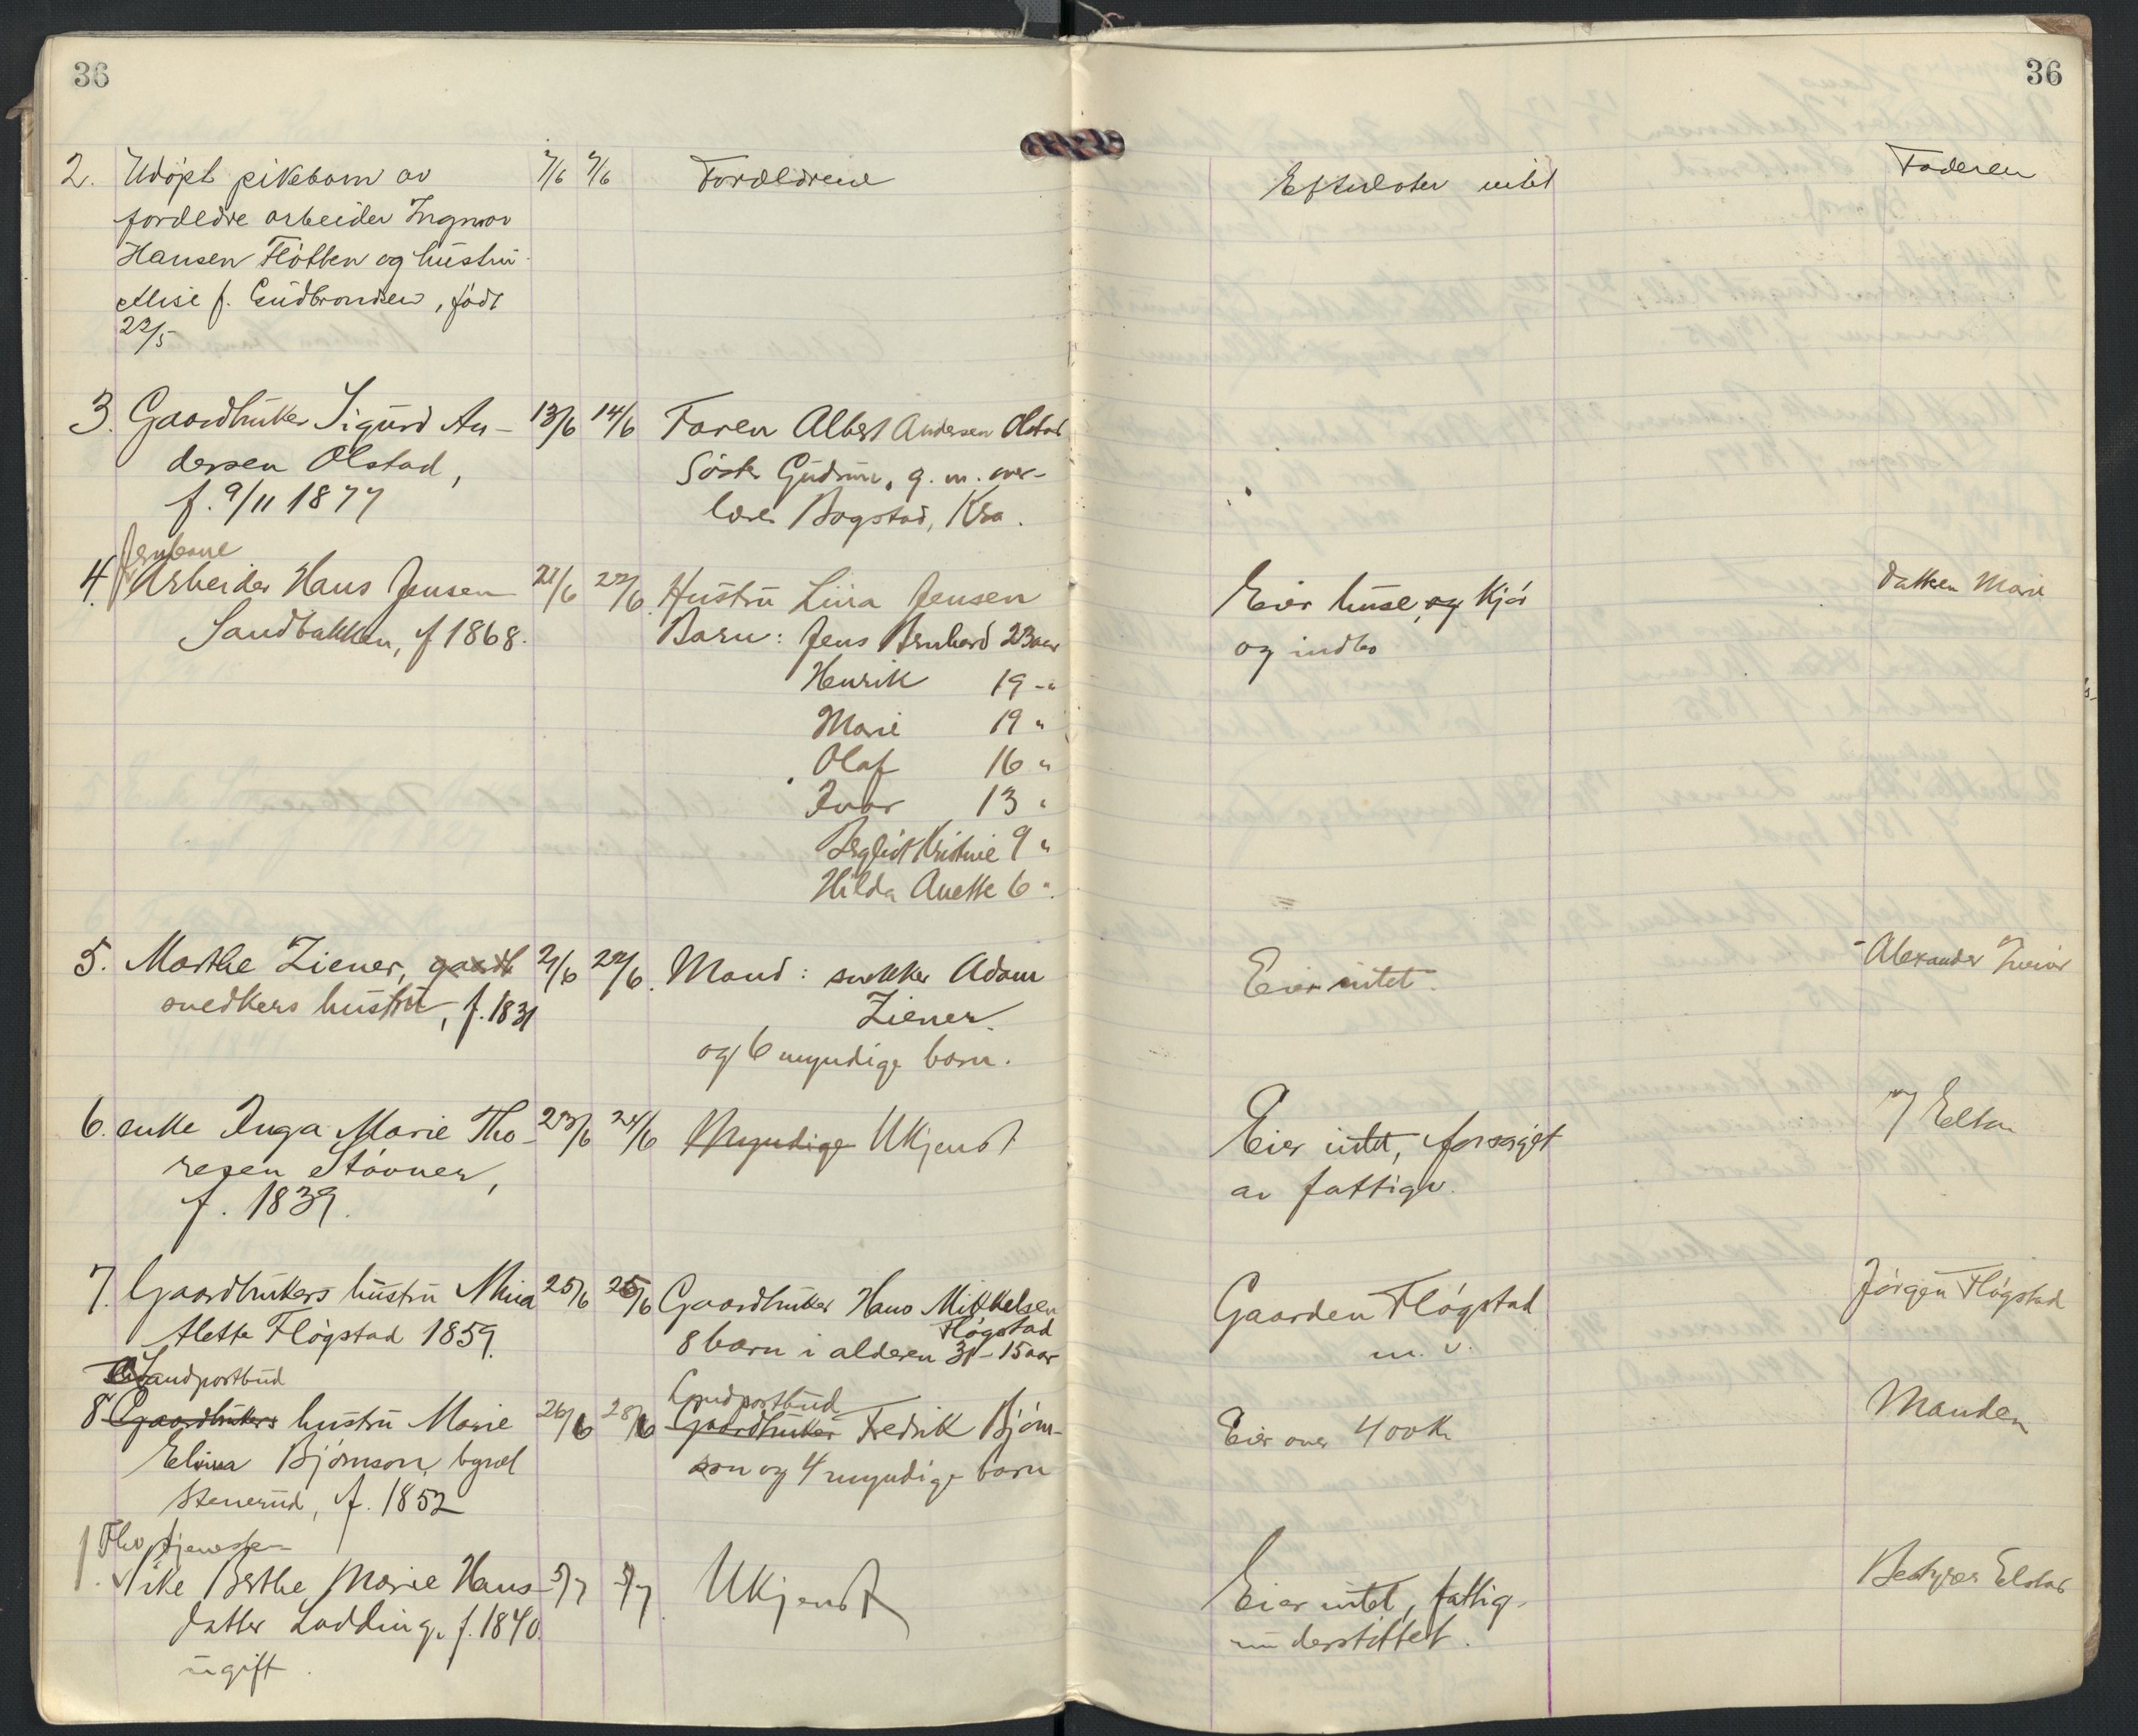 36
36
2. Udöpt pikebarn av 7/6 7/6 Forældrene Efterlater intet Faderen
forældre arbeider Ingmar
Hansen Fløtten og hustru
Elise f. Gudbrandsen, født
22/5
3. Gaardbruker Sigurd An- 13/6 14/6 Faren Albert Andersen Olstad
dersen Olstad, Søster Gudrun, g. m. over-
f. 9/11 1877 lærer Bogstad, Kra.
Jernbane
4. Arbeider Hans Jensen 21/6 22/6 Hustru Lina Jensen Eier huse, og kjør datteren Marie
Sandbakken, f 1868. Barn: Jens Bernhard 23 aar og indbo
Henrik 19 -"
Marie 19 "
Olaf 16 "
Ivar 13 "
Bergliot Kristine 9 "
Hilda Anette 6 "
5. Marthe Ziener, gaardb 21/6 22/6. Mand: snekker Adam Eier intet. Alexander
snedkers hustru, f. 1831 Ziener
og 6 myndige barn.
6. enke Inga Marie Tho- 23/6 24/6 Myndige Ukjendt Eier intet, forsørget
resen Støvner, av fattigv.
f. 1839.
7. Gaardbrukers hustru Mina 25/6 25/6 Gaardbruker Hans Mikkelsen Gaarden Fløgstad Jørgen Fløgstad
Alette Fløgstad 1859. Fløgstad
8 barn i alderen 31-15 aar m. v.
Landpostbud Landpostbud
8 Gaardbrukers hustru Marie 26/6 28/6 Gaardbruker Fredrik Bjørn- Eier over 400 kr Manden
Elvina Bjørnson, bygsel son og 4 myndige barn
Stenerud, f. 1852
Fhv tjeneste-
1. pike Berthe Marie Hans- 5/7 5/7 Ukjendt Eier intet, fattig- Bestyrer Elstad
datter Lodding, f. 1840. understøttet.
ugift.